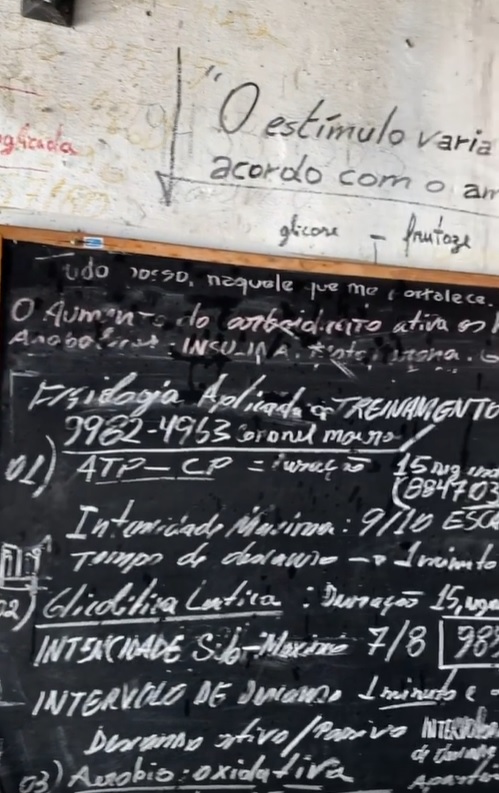 "O estímulo varia
acordo com o am
glicose - frutoze
Tudo posso, naquele que me fortalece.
O Aumento do carboidrato ativa os
INSULINA.
Fisiologia Aplicada ao TREINAMENTO
9982-4963 coronel
01) ATP-CP = duração 15 seg
(884703
Intensidade Maxima: 9/10 ESC
Tempo de descanso → 1 minuto
02) Glicolitica Latica: Duração 15,
INTENCIDADE Sub-Maxima 7/8 98
INTERVOLO DE Descanso 1 minuto e
Descanso ativo/Passivo INTERVOLO
de descanso
03) Aerobio: oxidativa